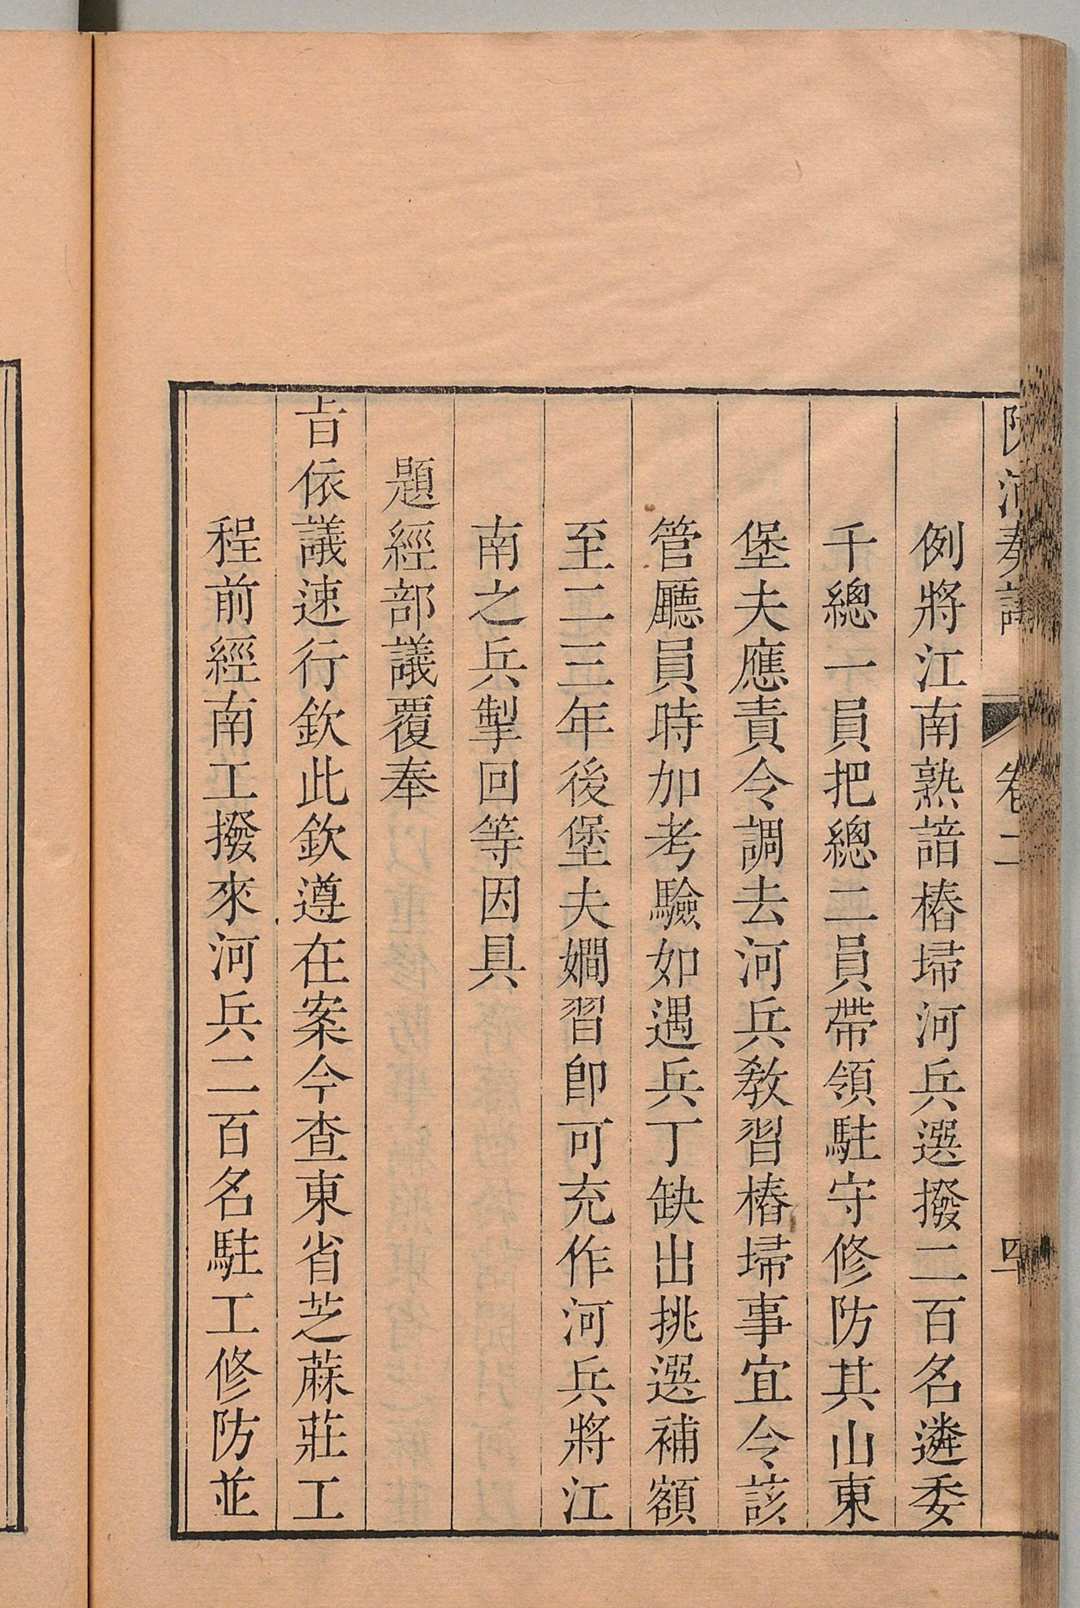 防河奏議 卷二 四
例將江南熟諳樁埽河兵選撥二百名遴委
千總一員把總二員帶領駐守修防其山東
堡夫應責令調去河兵教習樁埽事宜令該
管廳員時加考驗如遇兵丁缺出挑選補額
至二三年後堡夫嫺習卽可充作河兵將江
南之兵掣回等因具
題經部議覆奉
旨依議速行欽此欽遵在案今查東省芝蔴莊工
程前經南工撥來河兵二百名駐工修防並